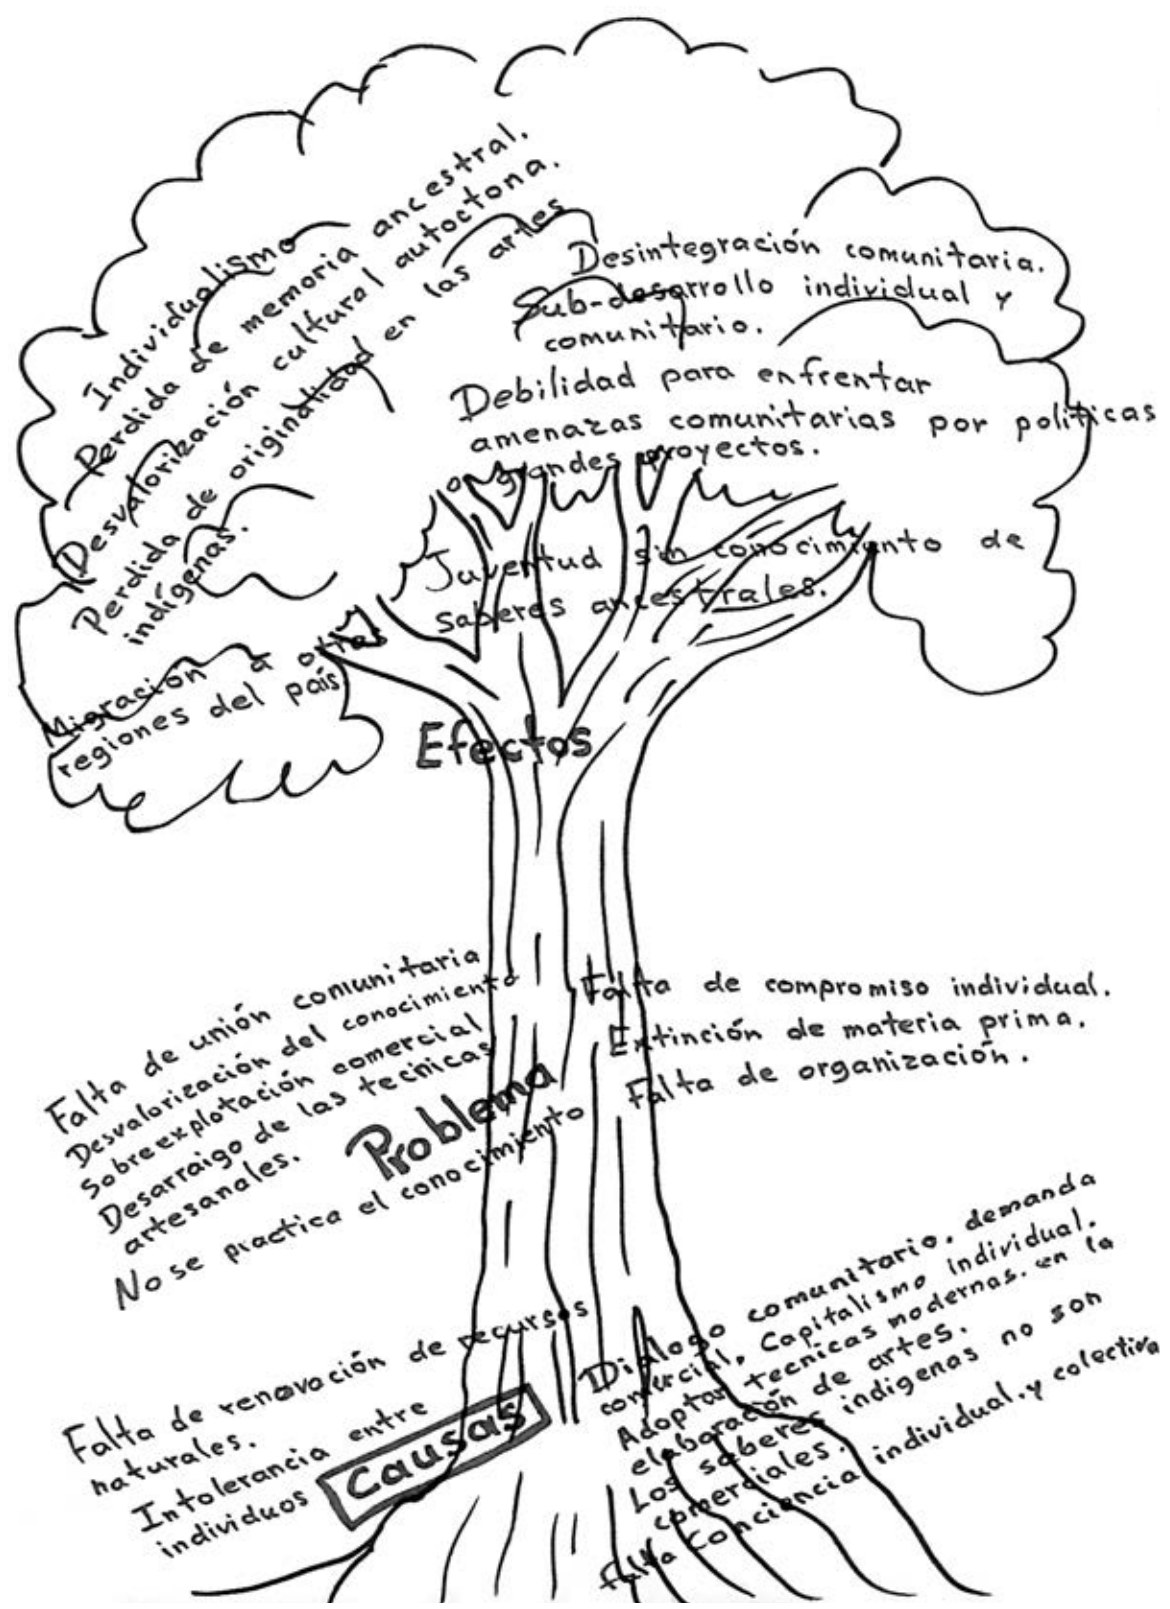 Individualismo
Perdida de memoria ancestral.
Desvalorización cultural autoctona.
Perdida de originalidad en las artes
indígenas.
Migración a otras
regiones del país.
Desintegración comunitaria.
Sub-desarrollo individual y
comunitario.
Debilidad para enfrentar
amenazas comunitarias por políticas
o grandes proyectos.
Juventud sin conocimiento de
saberes ancestrales.
Efectos
Falta de unión comunitaria
Desvalorización del conocimiento
Sobreexplotación comercial
Desarraigo de las tecnicas
artesanales.
No se practica el conocimiento
Problema
Falta de compromiso individual.
Extinción de materia prima.
Falta de organización.
Falta de renovación de recursos
naturales.
Intolerancia entre
individuos
Causas
Dialogo comunitario. demanda
comercial, Capitalismo individual.
Adoptan tecnicas modernas. en la
elaboración de artes.
Los saberes indigenas no son
comerciales.
falta Conciencia individual. y colectiva